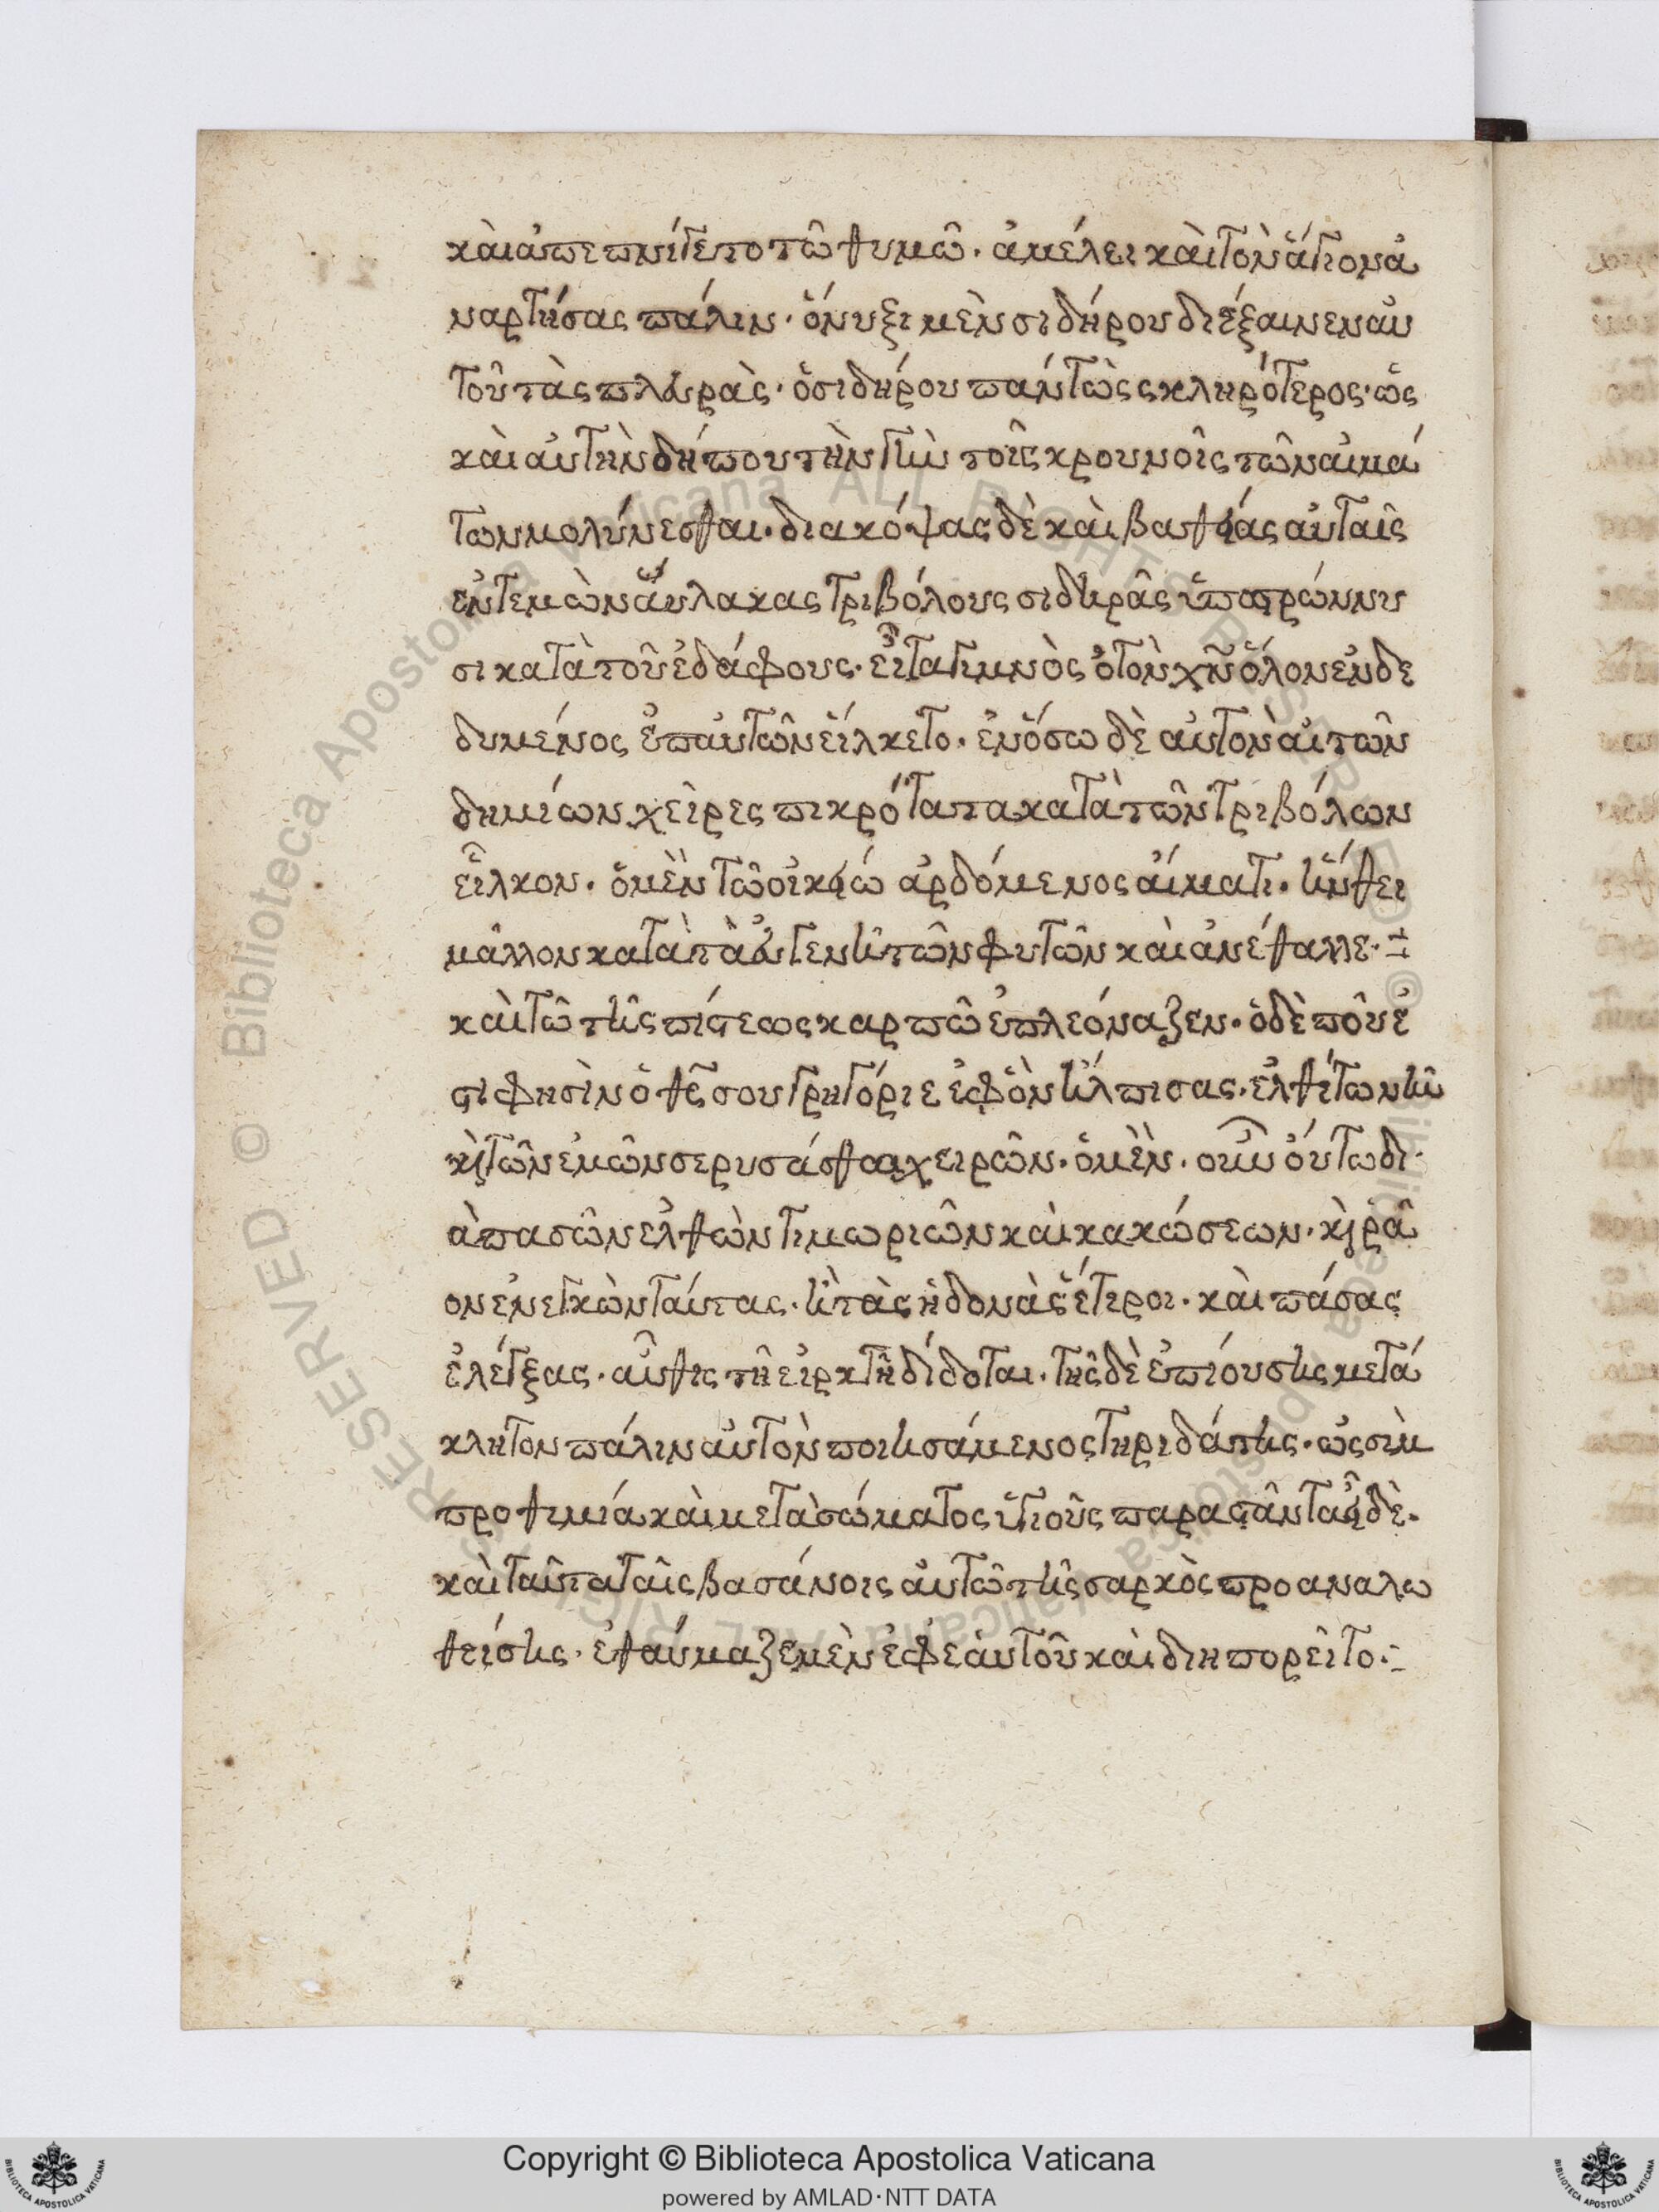 καὶ ἀπεπνίγετο τῶ θυμῶ· ἀμέλει καὶ τὸν ἅγιον ἀ
ναρτήσας πάλιν· ὄνυξι μὲν σιδήρου διέξαινεν αὐ
τοῦ τὰς πλευρὰς· ὁ σιδήρου πάντως σκληρότερος· ὡς
καὶ αὐτὴν δήπου τὴν γῆν τοῖς κρουνοῖς τῶν αἱμά
των μολύνεσθαι· διακόψας δὲ καὶ βαθείας αὐταῖς
ἐντεμὼν αὔλακας τριβόλους σιδηρᾶς ὑποστρώννυ
σι κατὰ τοῦ ἐδάφους· εἶτα γυμνὸς ὁ τὸν χν ὅλον ἐνδε
δυμένος ἐπ αὐτῶν εἵλκετο· ἐν ὅσω δὲ αὐτὸν αἱ τῶν
δημίων χεῖρες πικρότατα κατὰ τῶν τριβόλων
εἷλκον· ὁ μὲν τῶ οἰκείω ἀρδόμενος αἵματι· ἤνθει
μᾶλλον κατὰ τὰ εὐγενῆ τῶν φυτῶν καὶ ἀνέθαλλε·
καὶ τῶ τῆς πίστεως καρπῶ ἐπλεόναζεν· ὁ δὲ ποῦ ἐ
στι φησὶν ὁ θς σου γρηγόριε ἐφ ὃν ἤλπισας· ἐλθέτω νῦ
κ τῶν ἐμῶν σε ρυσάσθαι χειρῶν· ὁ μὲν· οὖν οὕτω δι
ὰ πασῶν ἐλθὼν τιμωριῶν καὶ κακώσεων· κ ρᾶ
ον ἐνεγκὼν ταύτας· ἢ τὰς ἡδονὰς ἕτεροι· καὶ πάσας
ἐλέγξας· αὖθις τῆ εἱρκτῆ δίδοται· τῆς δὲ ἐπιούσης μετά
κλητον πάλιν αὐτὸν ποιησάμενος τηριδάτης· ὡς σὺν
προθυμία καὶ μετὰ σώματος ὑγιοῦς παραστάντα εἶδε·
καὶ ταῦτα ταῖς βασάνοις αὐτῶ τῆς σαρκὸς προαναλω
θείσης· ἐθαύμαζε μὲν ἐφ ἑαυτοῦ καὶ διηπορεῖτο·
Copyright © Biblioteca Apostolica Vaticana
powered by AMLAD·NTT DATA